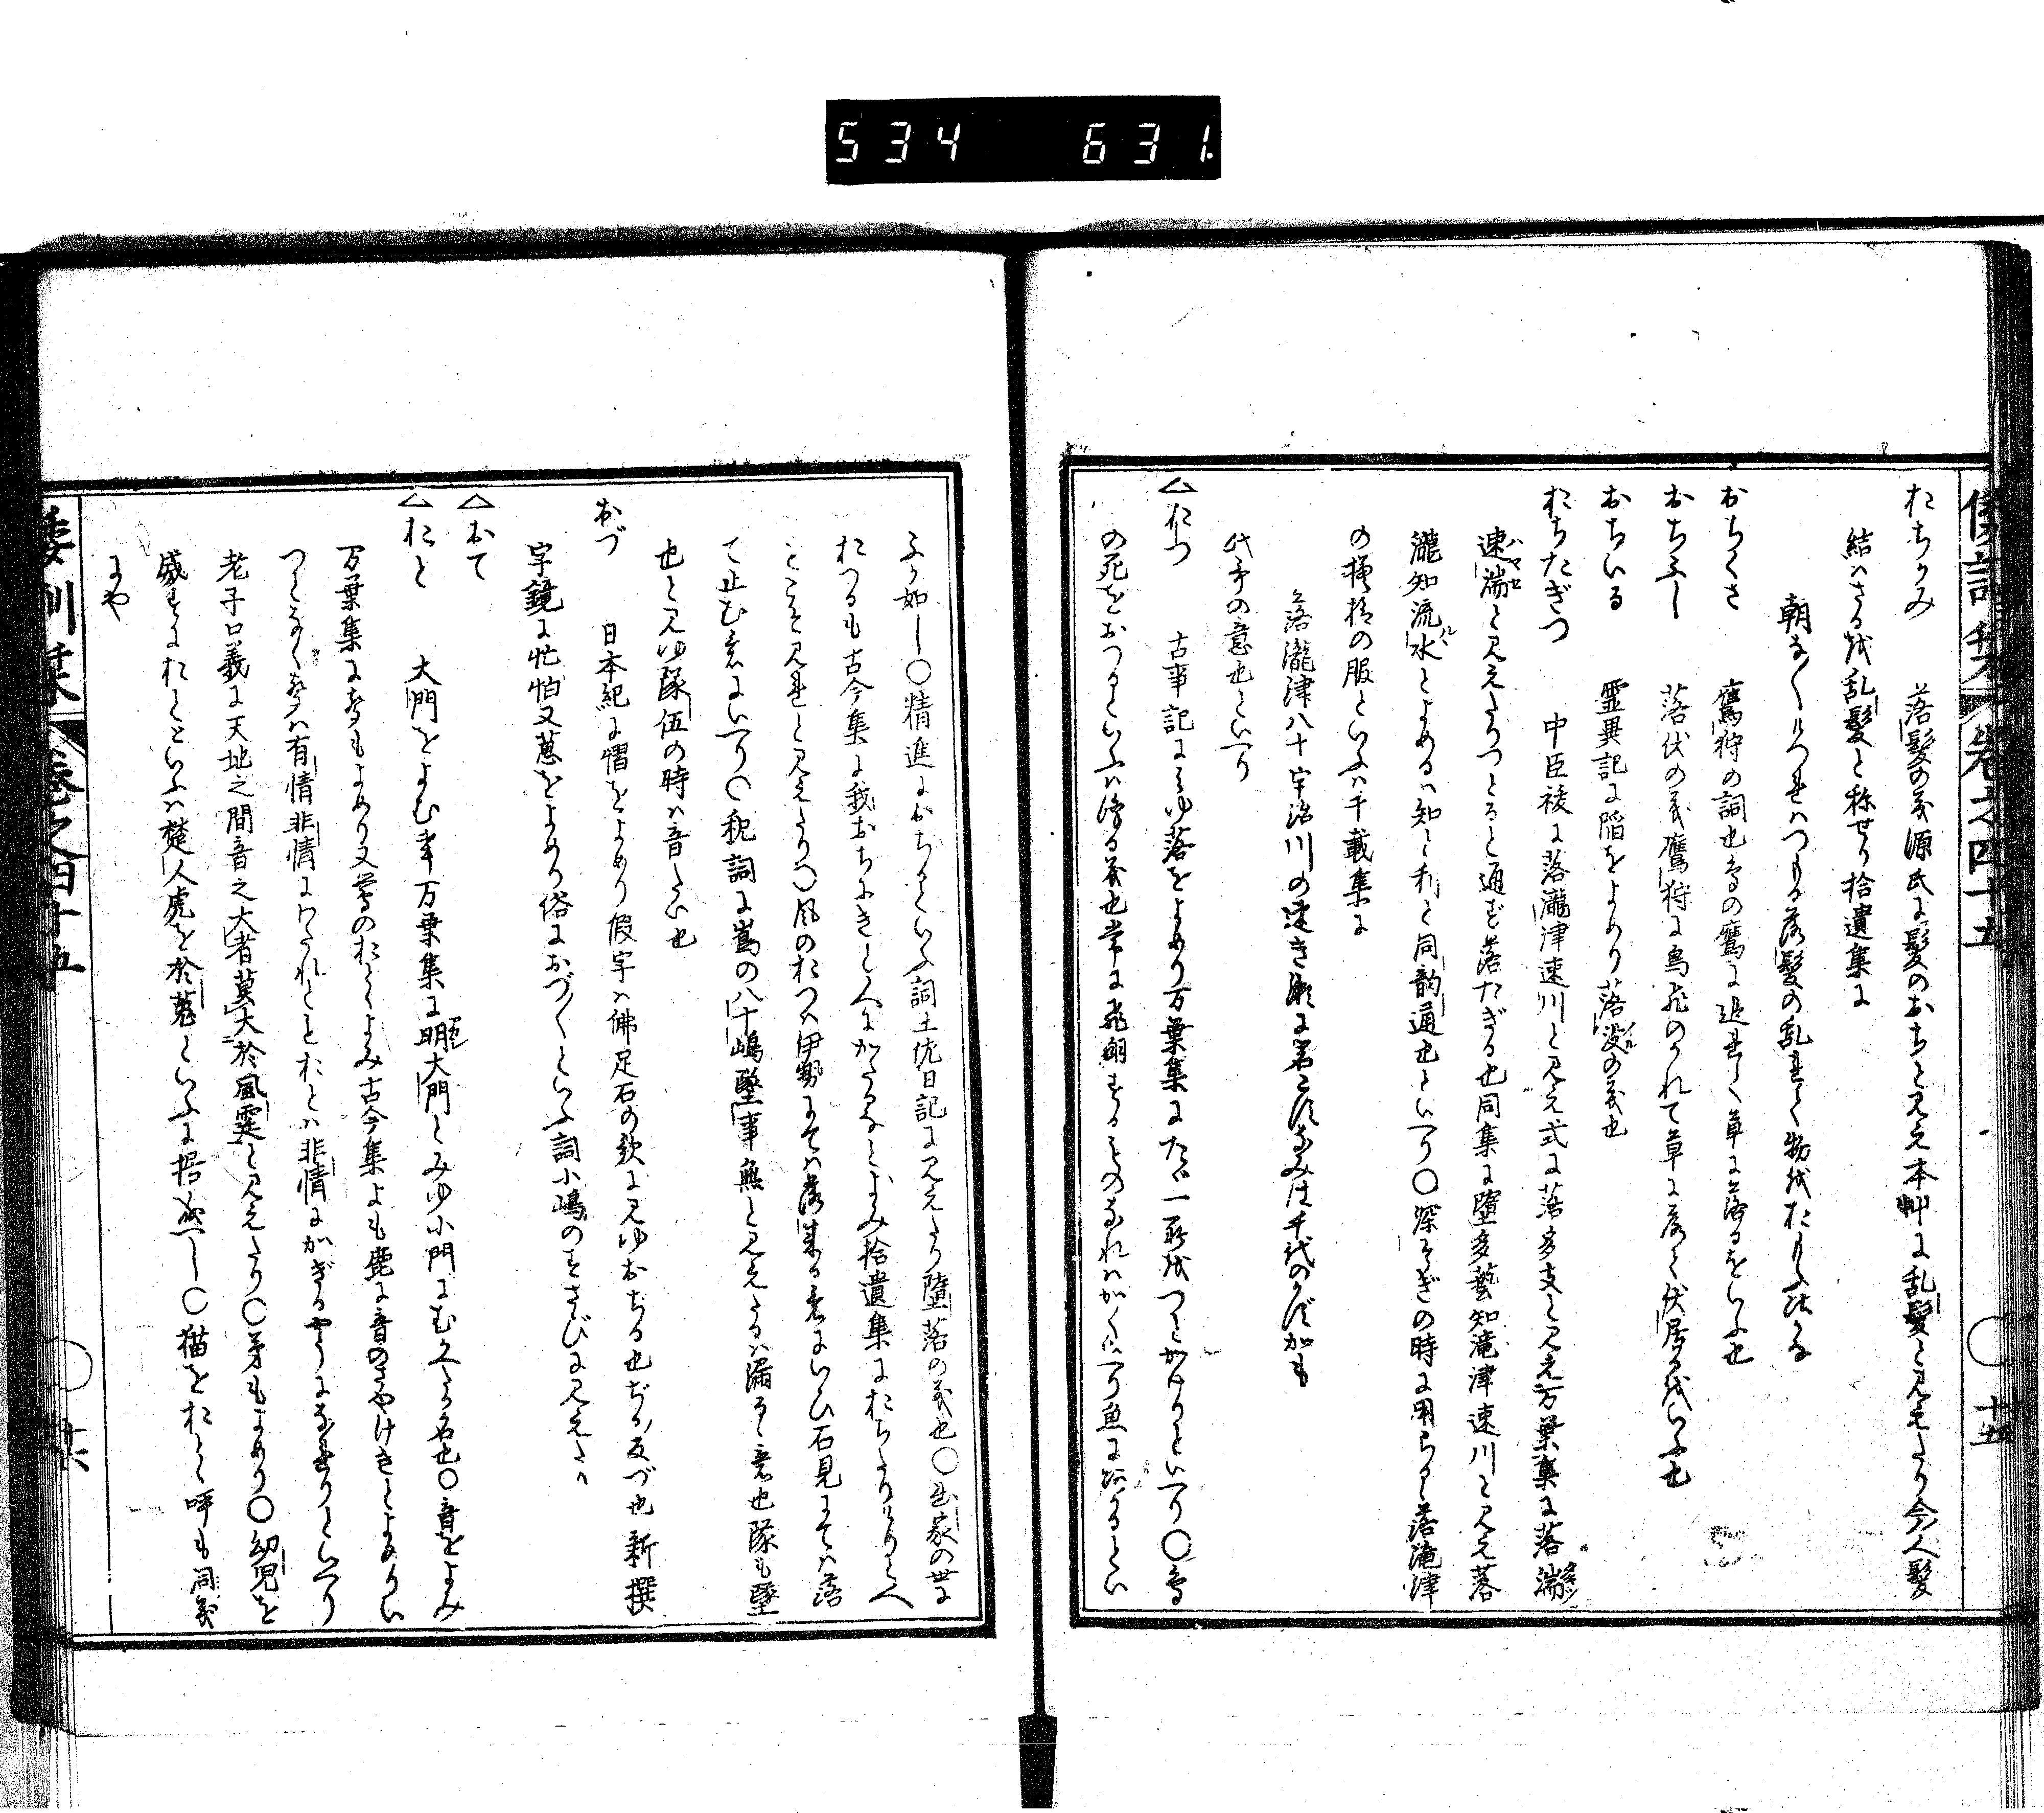 534 631.
倭訓栞 巻之四十五 ○ 十五
おちがみ 落髪の義源氏に髪のおちと見え本艸に乱髪と見えたり今人髪
結はさるを乱髪と称せり拾遺集に
朝な〳〵けつれはつもる落髪の乱れて物をおもふ比かな
おちくさ 鷹狩の詞也鳥の鷹に追れて草に落るをいふ也
おちふし 落伏の義鷹狩に鳥飛のかれて草に落て伏居るをいふ也
おちいる 霊異記に陥をよめり落没の義也
おちたぎつ 中臣祓に落瀧津速川と見え式に落多支と見え万葉集に落湍
速湍と見えたりつとると通ず落たぎる也同集に墮多藝知滝津速川と見え落
瀧知流水とよめるは知と利と同韵通也といへり○深そぎの時に用らるゝ落滝津
の模様の服といふは千載集に
落瀧津八十宇治川の速き瀬に岩こす浪は千代のかずかも
此哥の意也といへり
△おつ 古事記にみゆ落をよめり万葉集にたゞ一夜をつとかけりといへり○鳥
の死をおつるといふは落る義也常に飛翔するものなれはかくいへり魚におつるとい
ふか如し○精進におちるといふ詞土佐日記に見えたり墮落の義也○出家の世に
おつるも古今集に我おちにきと人にかたるなとよみ拾遺集におちたりけりと人へ
とこそ見れと見えたり○風のおつ伊勢にては落来る意にいひ石見にては落
て止む意にいへり○祝詞に嶌の八十嶋墜事無と見えたるは漏るゝ意也隊も墜
也と見ゆ隊伍の時は音たい也
おづ 日本紀に慴をよめり假字は佛足石の歌に見ゆおぢる也ぢる反づ也新撰
字鏡に忙怕又葸をよめり俗におづ〳〵といふ詞小嶋のすさびに見えたり
△おて
△おと 大門をよむ事万葉集に明大門とみゆ小門にむかへる名也○音をよみ
万葉集に聲もよめり又響のおとゝよみ古今集にも鹿に音のさやけきとよめりい
つくなく聲は有情非情にわたれともおとは非情にかぎるやうになれりといへり
老子口義に天地之間音之大者莫大於風霆と見えたり○弟もよめり○幼児を
威すにおとといふは楚人虎を於菟といふに据成へし○猫をおとゝ呼も同義
にや
倭訓栞 巻之四十五 ○ 十六